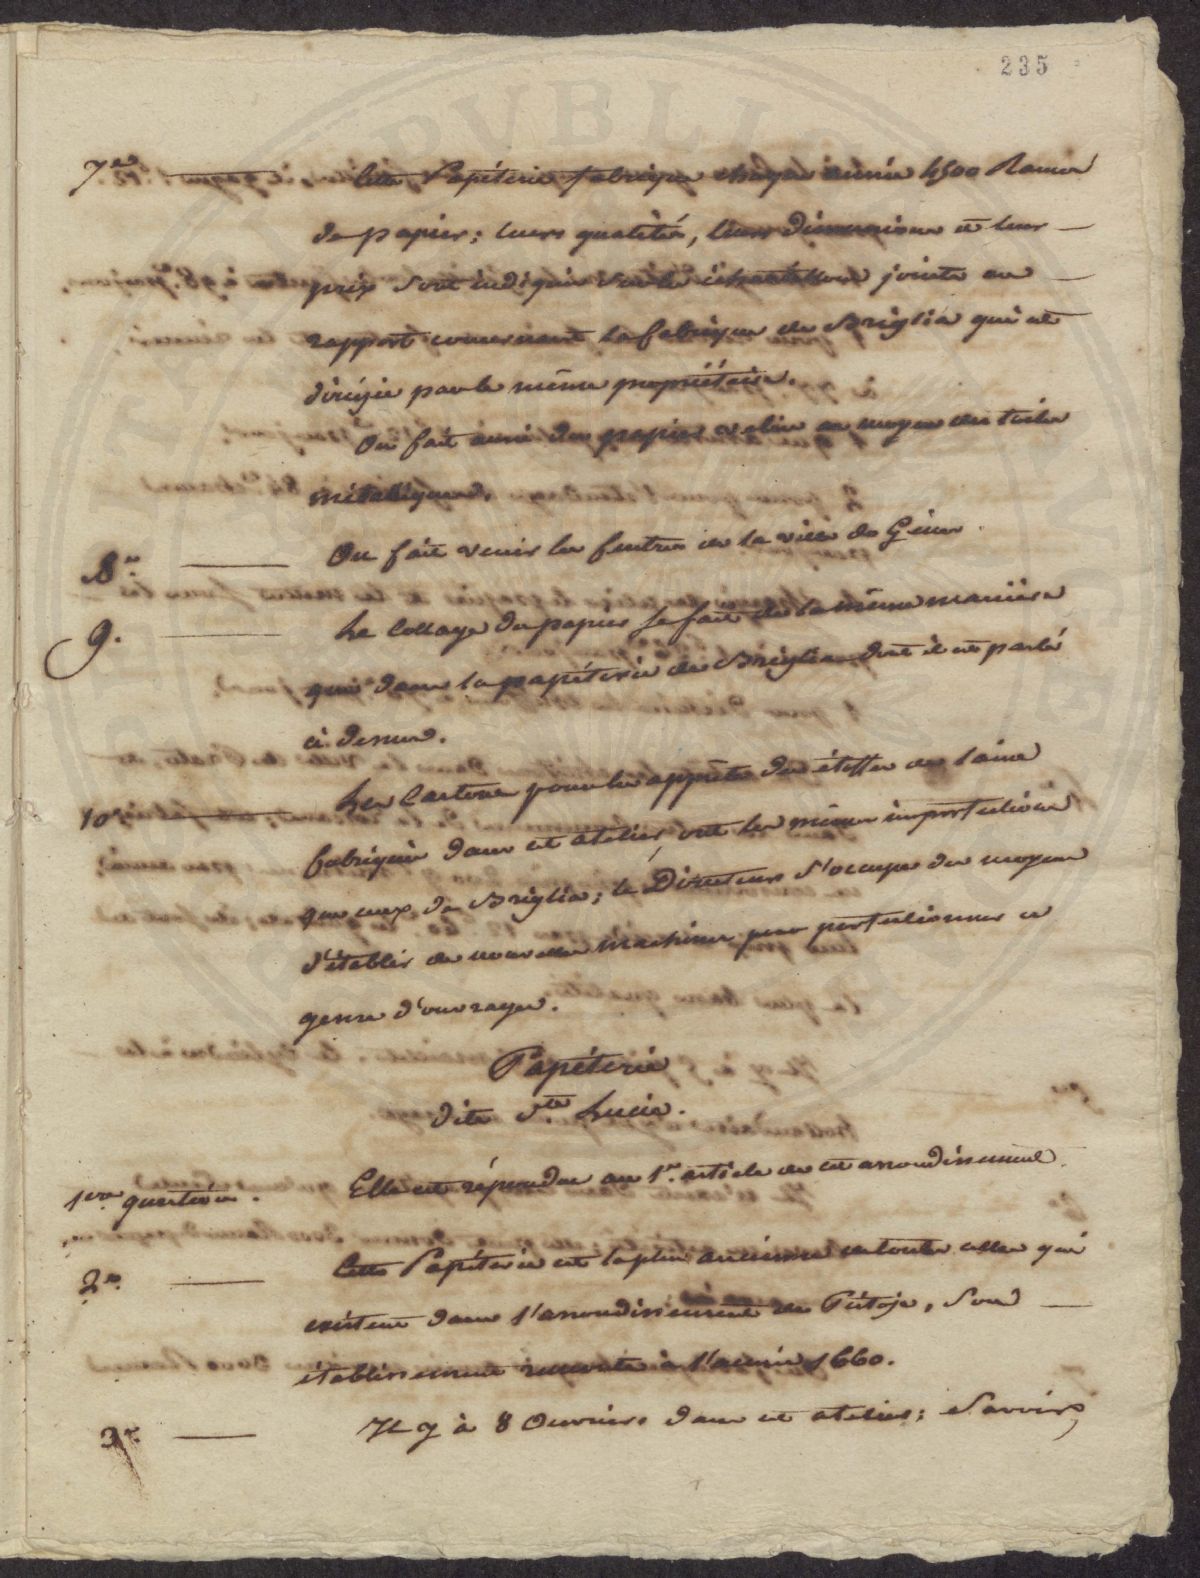 235
7.e ——— Cette Papéterie fabrique chaque année 4500 Rames
de papier; leurs qualités, leurs dimensions et leur —
prix sont indiqués sur les échantillons joints au —
rapport concernant la fabrique de Briglia qui est
dirigée par le même propriétaire.
On fait aussi du papier velin au moyen des toiles
métalliques.
8.e ——— On fait venir les feutres de la ville de Gènes.
9. ——— Le Collage du papier se fait de la même manière
que dans la papéterie de Briglia dont il est parlé
ci dessus.
10.e ——— Les Cartons pour les apprêts des étoffes de laine
fabriqués dans cet atelier, ont les mêmes imperfections
que ceux de Briglia; le Directeur s'occupe des moyens
d'établir de nouvelles machines pour perfectionner ce
genre d'ouvrages.
Papéterie
dite S.te Lucie.
1ere question. Elle est répondue au 1.er article de cet arrondissement.
2.e ——— Cette Papéterie est la plus ancienne de toutes celles qui
existent dans l'arrondissement de Pistoje, Son —
établissement remonte à l'année 1660.
3.e ——— Il y à 8 Ouvriers dans cet atelier; Savoir,